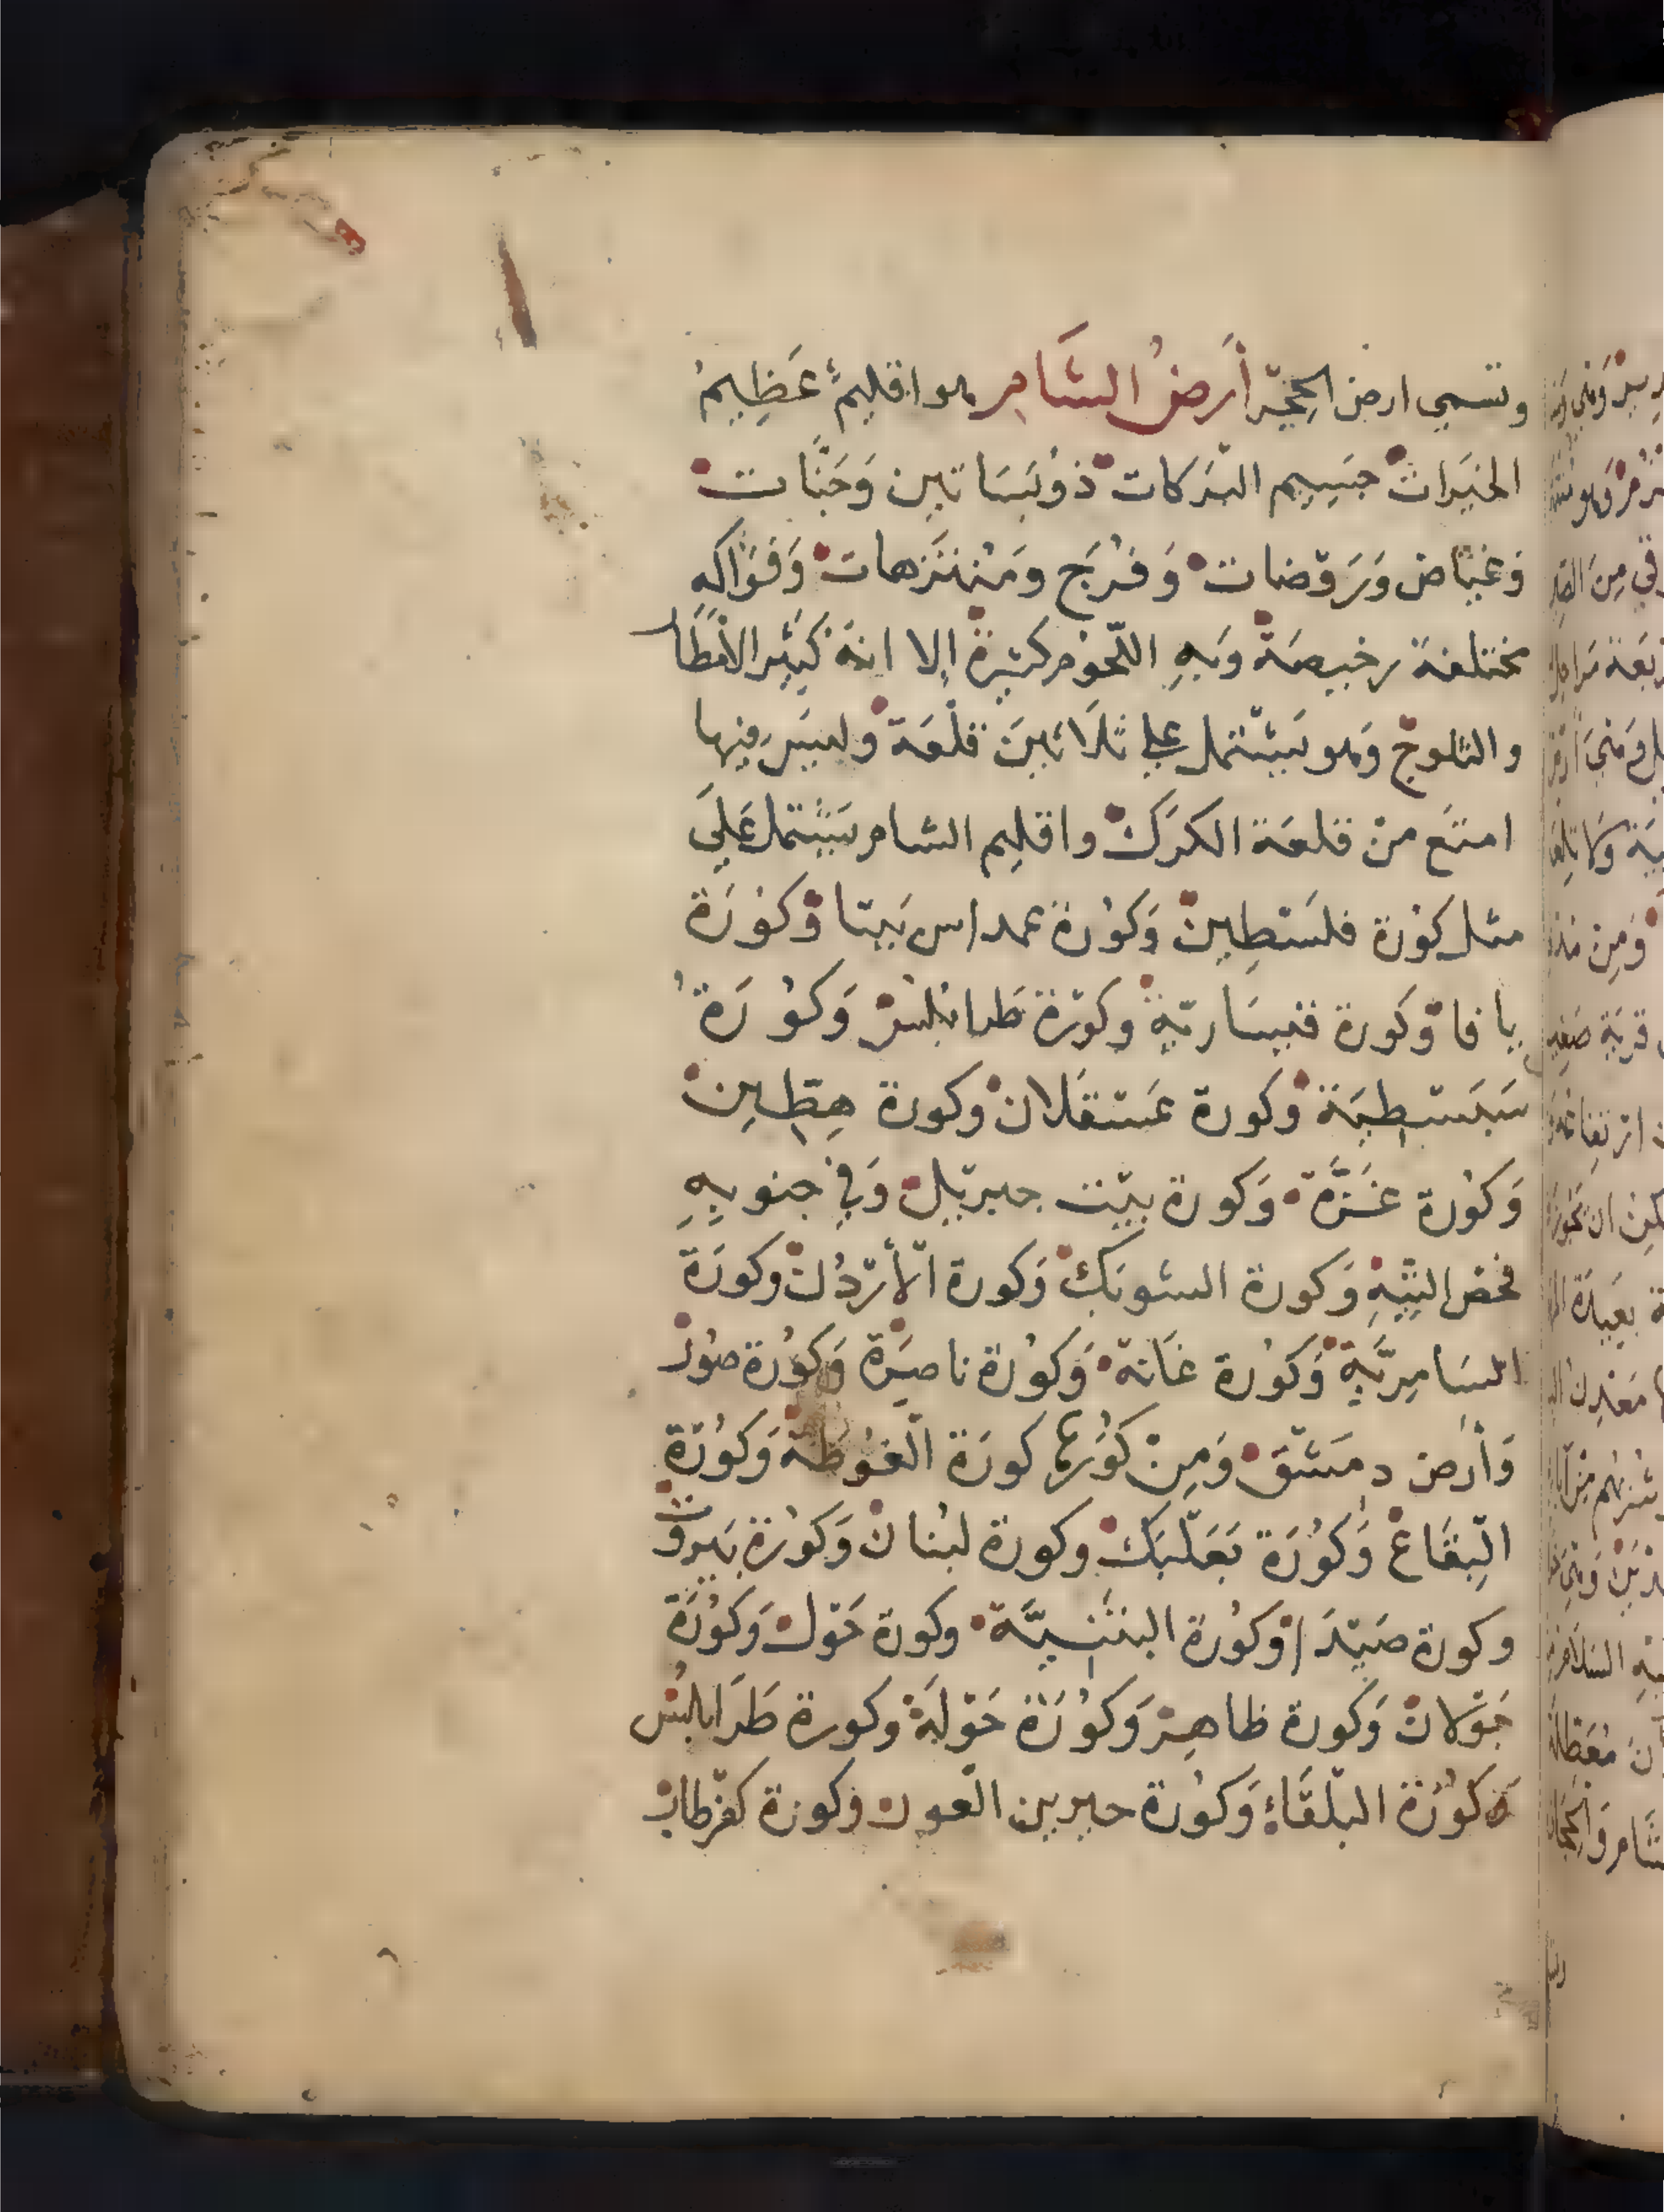 وتسمي ارض الحِجْر أَرضُ الشَّامِ وهو اقليمٌ عَظِيمُ
الخيَرات جسَيِيم البَركات ذوُ بَسَاتين وَجَنَّات
وَغيَاض وَرَوْضات وَفرُجَ ومَنْتَزهات وَفَوَاكه
مختلفة رخيصَة وَبهِ اللّحوْم كثيرة إلا انهُ كَثيِر الأمَطَار
والثلوج وَهو يَشْتمل علي ثلاَثينَ قلْعَة وليسَ فيها
امنَع منْ قلعَة الكرَك واقليم الشام يَشْتمل عَليَ
مثل كوُرة فلسَطِين وَكوُرة عمداس بَيتا وَكوُرَة
يافا وَكورة قيسَاريّةِ وَكوْرة طَرابُلسْ وَكوُرَةُ
سَبَسْطيَة وَكورة عَسْقَلان وَكورة حِطِين
وَكوُرة غَزَّة وَكورة بيَْت جبريَل وَفي جنوبهِ
فحَصْ التِيِّهِ وَكورة الشوبَك وَكورة الأرْدُن وكورَة
السَامِريَّةِ وَكوُرة عَانة وَكوُرة ناصِرَة وَكوُرة صوُر
وَأرض دمَشْق وَمِنْ كوُرها كورَة الغُوطة وَكوُرَة
البِقَاعْ وَكوُرَة بَعَلْبَك وكورة لبُنان وَكوُرة بَيروُت
وكورة صَيْدَا وَكوُرة البثَنِيَّة وكورة حَوْل وَكوُرَة
جَوْلان وَكورة ظاهِرْ وَكوُرَة حَوْلَة وكورة طَرَابلسُ
وَكوُرَة البلْقَاءِ وَكوُرة جبرين الغَور وَكورة كفرْطاب